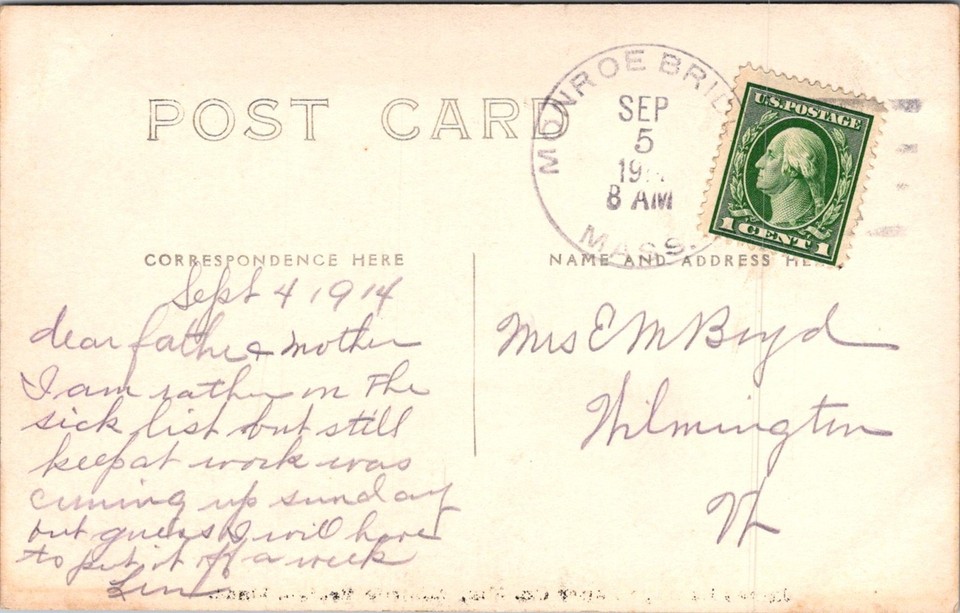 POST CARD
MONROE BRI
SEP
5
19
8 AM
MASS.
U.S. POSTAGE
1 CENT 1
CORRESPONDENCE HERE
NAME AND ADDRESS HE
Sept 4 1914
dear father & mother
I am rather on the
sick list but still
keep at work was
cuming up sunday
but guess I will have
to put it of a week
Mrs E M Boyd
Wilmington
Vt